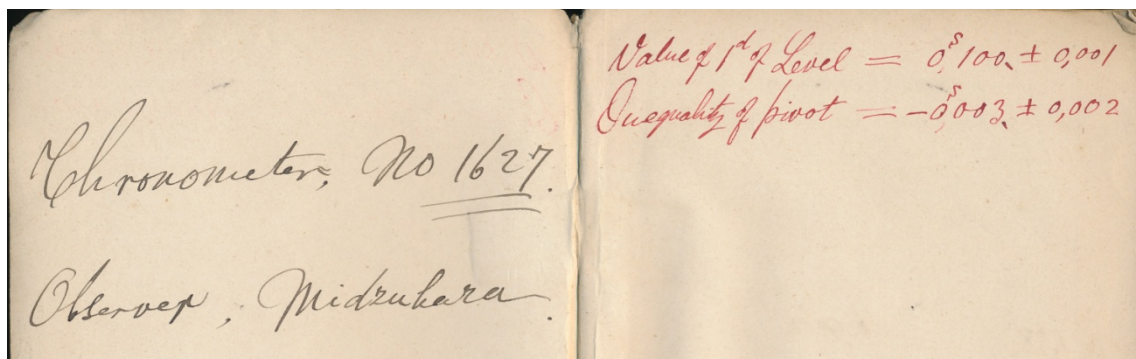 Chronometer, No 1627.
Observer, Midzuhara.
Value of 1ᵈ of Level = 0ˢ,100 ± 0,001
Inequality of pivot = -0ˢ,003 ± 0,002